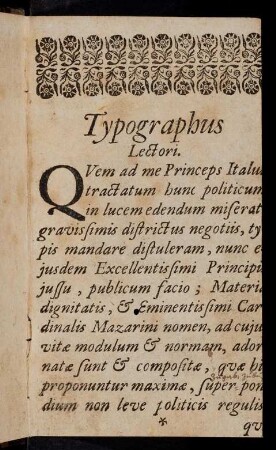 Typographus
Lectori.
QVem ad me Princeps Italu
tractatum hunc politicum
in lucem edendum miserat
gravissimis districtus negotiis, ty
pis mandare distuleram, nunc e
jusdem Excellentissimi Principi
jussu, publicum facio; Materia
dignitatis, & Eminentissimi Car
dinalis Mazarini nomen, ad cuju
vitæ modulum & normam, ador
natæ sunt & compositæ, quæ hi
proponuntur maximæ, super pon
dium non leve politicis regulis
*
qu